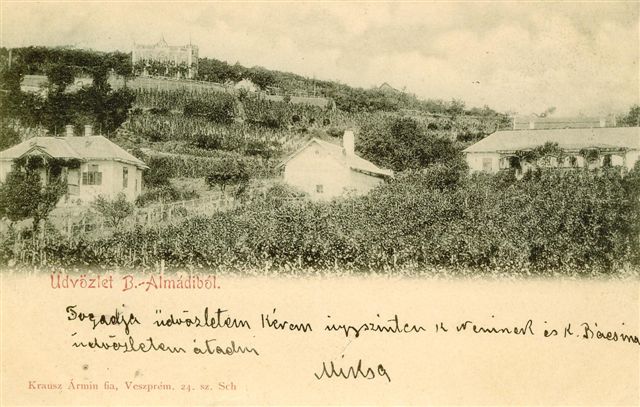 Üdvözlet B.-Almádiból.
Fogadja üdvözletem Kérem úgyszinten K Neninek és K.
üdvözletem átadni
Miksa
Krausz Ármin fia, Veszprém. 24. sz. Sch